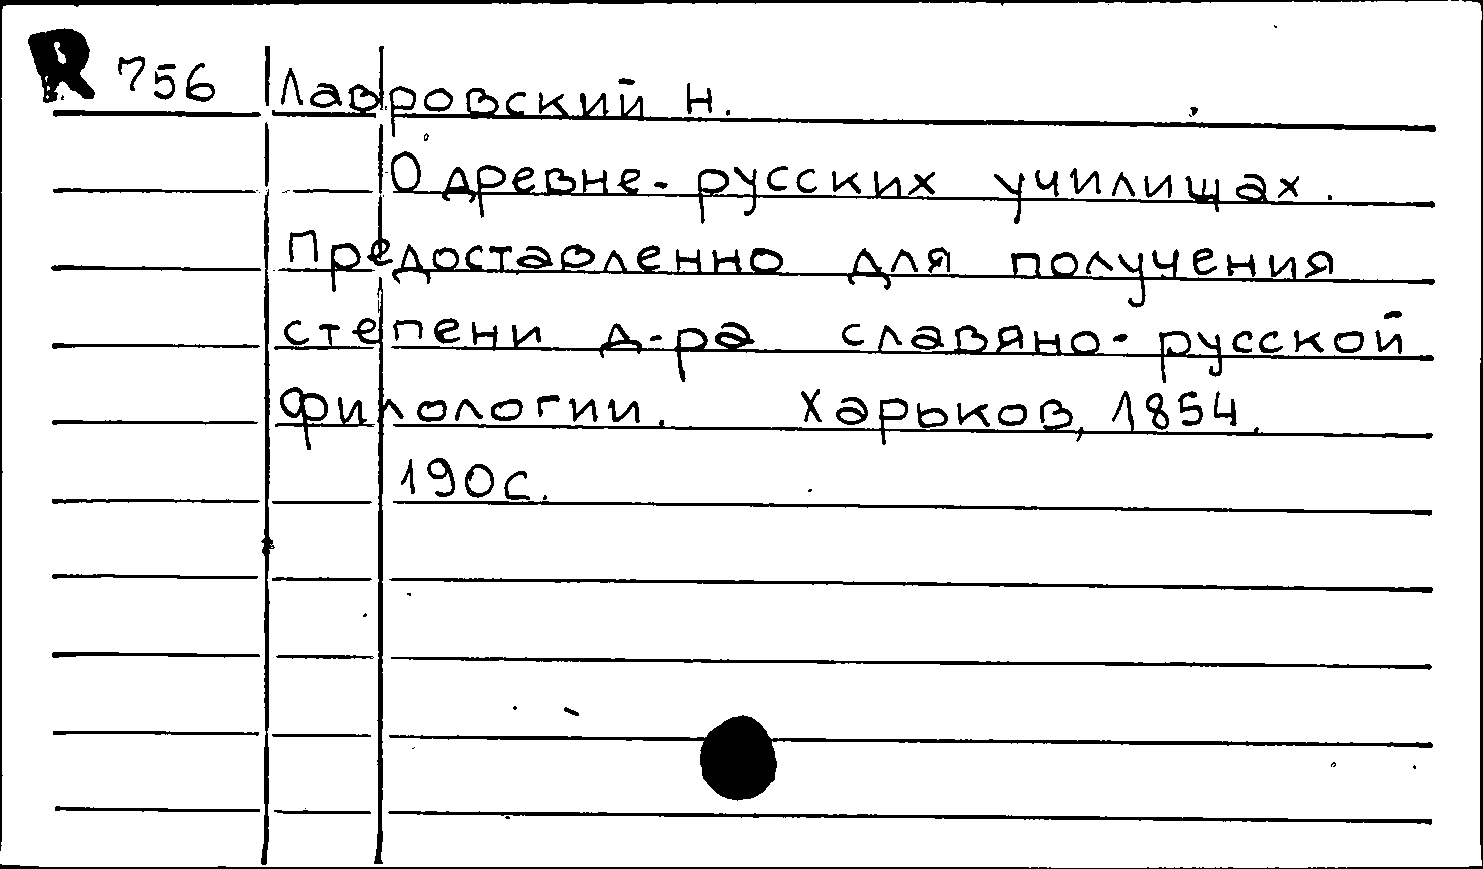 R 756 Лавровский Н.
О древне-русских училищах.
Предоставленно для получения
степени д-ра славяно-русской
филологии. Харьков, 1854.
190с.